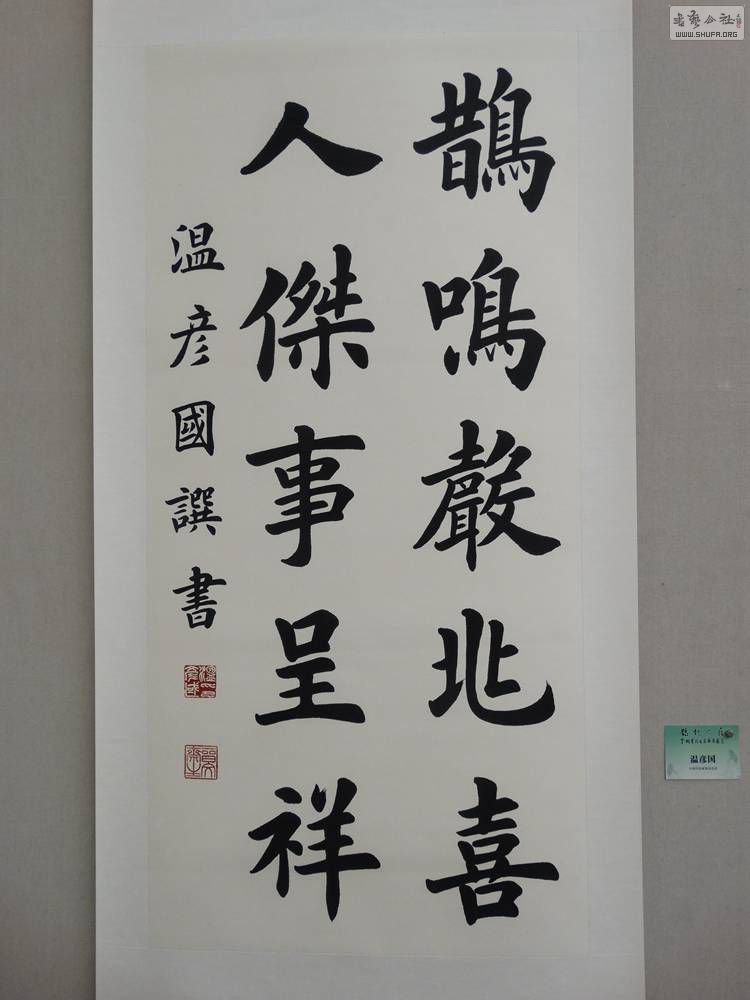 鵲鳴聲兆喜
人傑事呈祥
温彦國譔書
書藝公社
WWW.SHUFA.ORG
温彦国